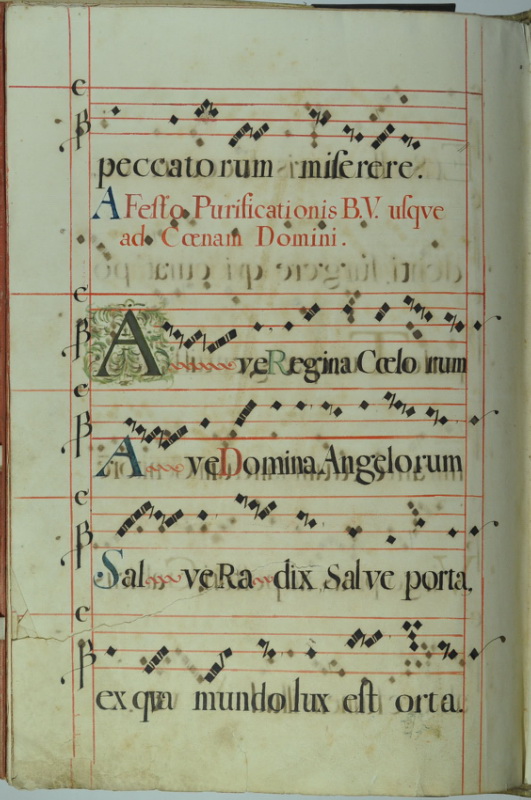 peccatorum miserere.
A Festo Purificationis B.V. usqve
ad Cœnam Domini.
Ave Regina Cœlorum
Ave Domina Angelorum
Salve Radix Salve porta.
ex qva mundo lux est orta.